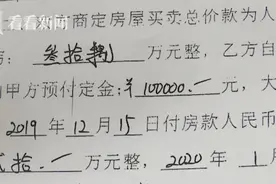 看看新闻
商定房屋买卖总价款为人
叁拾 万元整，乙方自
甲方预付定金:¥100000.一元，大
2019年12月15日付房款人民币
拾.一万元整，2020年1月